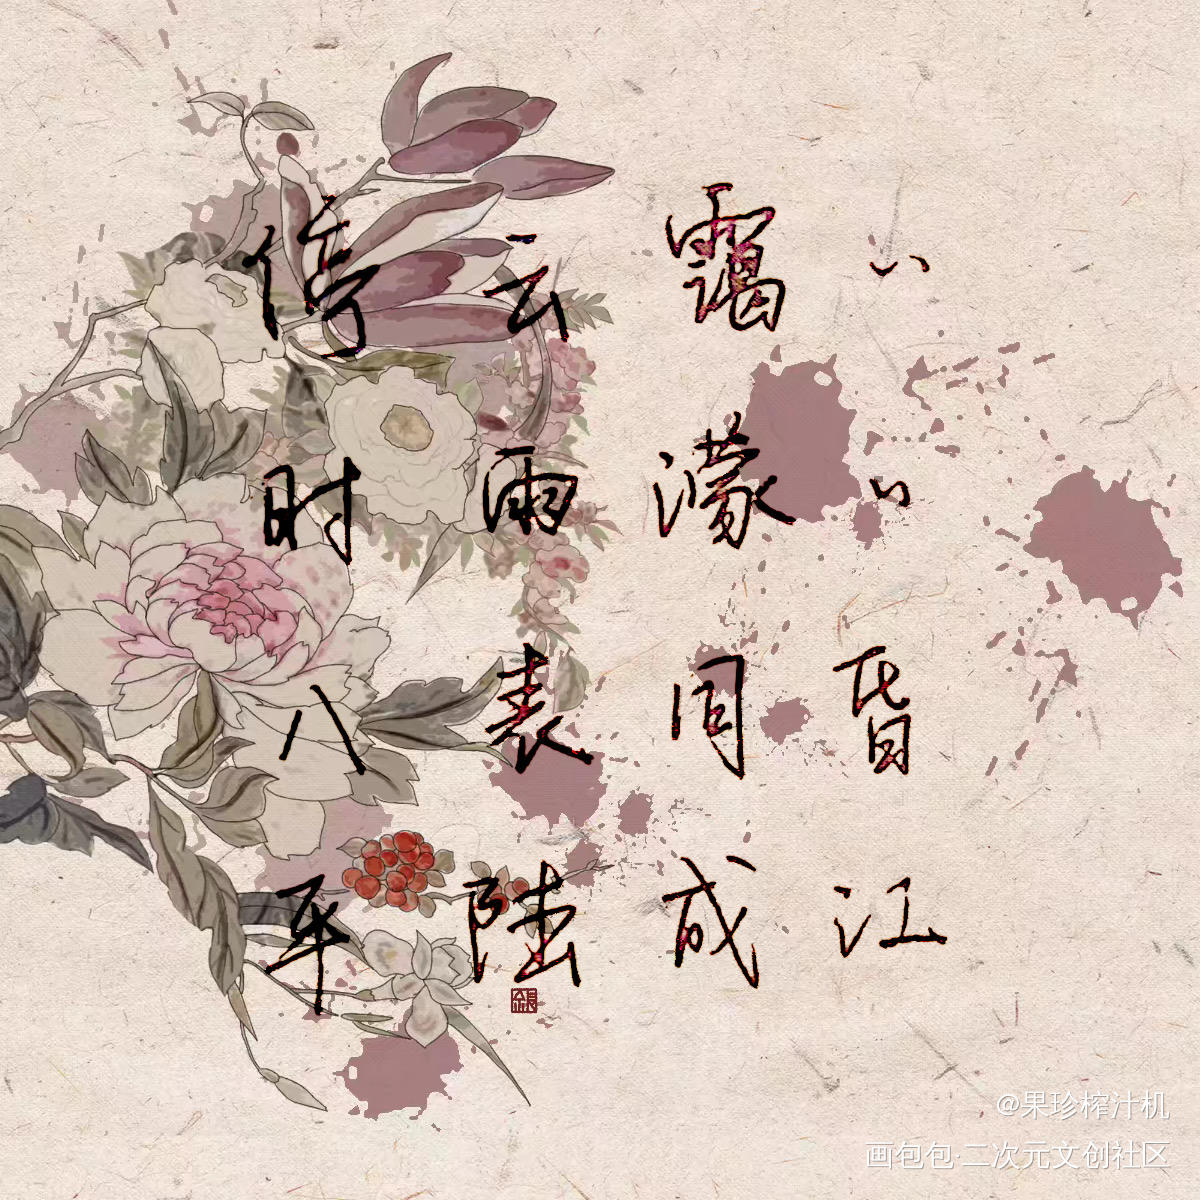 停云霭〻
时雨濛〻
八表同昏
平陆成江
@果珍榨汁机
画包包·二次元文创社区